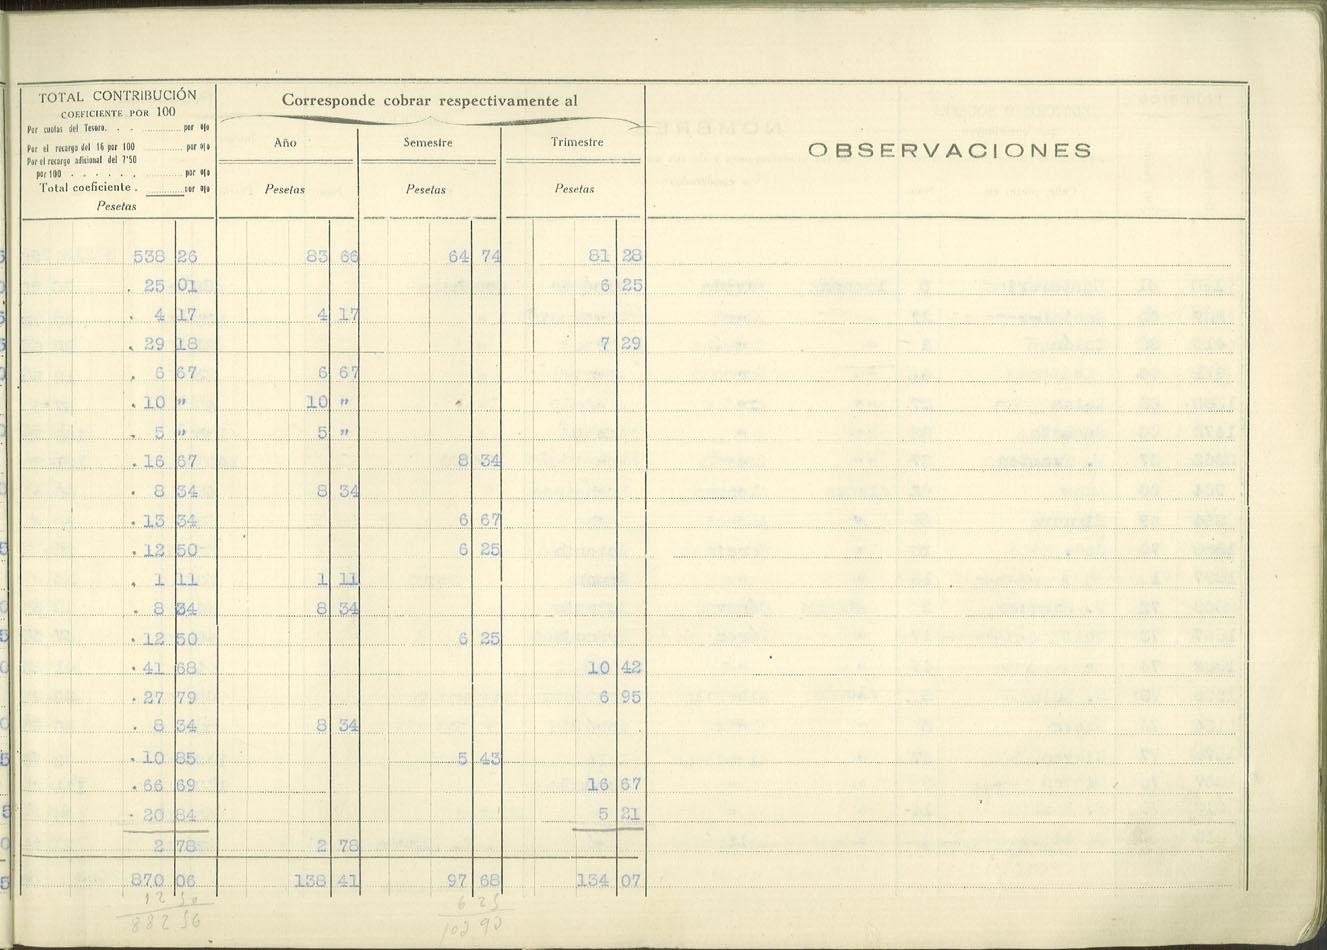 TOTAL CONTRIBUCIÓN
COEFICIENTE POR 100
Por cuotas del Tesoro. . . ............ por %
Por el recargo del 16 por 100 ............ por %
Por el recargo adicional del 7'50
por 100 . . . . . . ............ por %
Total coeficiente . ............ por %
Pesetas
Corresponde cobrar respectivamente al
Año Semestre Trimestre
Pesetas Pesetas Pesetas
OBSERVACIONES
538 26 83 66 64 74 81 28
. 25 01 6 25
. 4 17 4 17
. 29 18 7 29
. 6 67 6 67
. 10 " 10 "
. 5 " 5 "
. 16 67 8 34
. 8 34 8 34
. 13 34 6 67
. 12 50 6 25
. 1 11 1 11
. 8 34 8 34
. 12 50 6 25
. 41 68 10 42
. 27 79 6 95
. 8 34 8 34
. 10 85 5 43
. 66 69 16 67
. 20 84 5 21
2 78 2 78
870 06 138 41 97 68 134 07
12 50 6 25
882 56